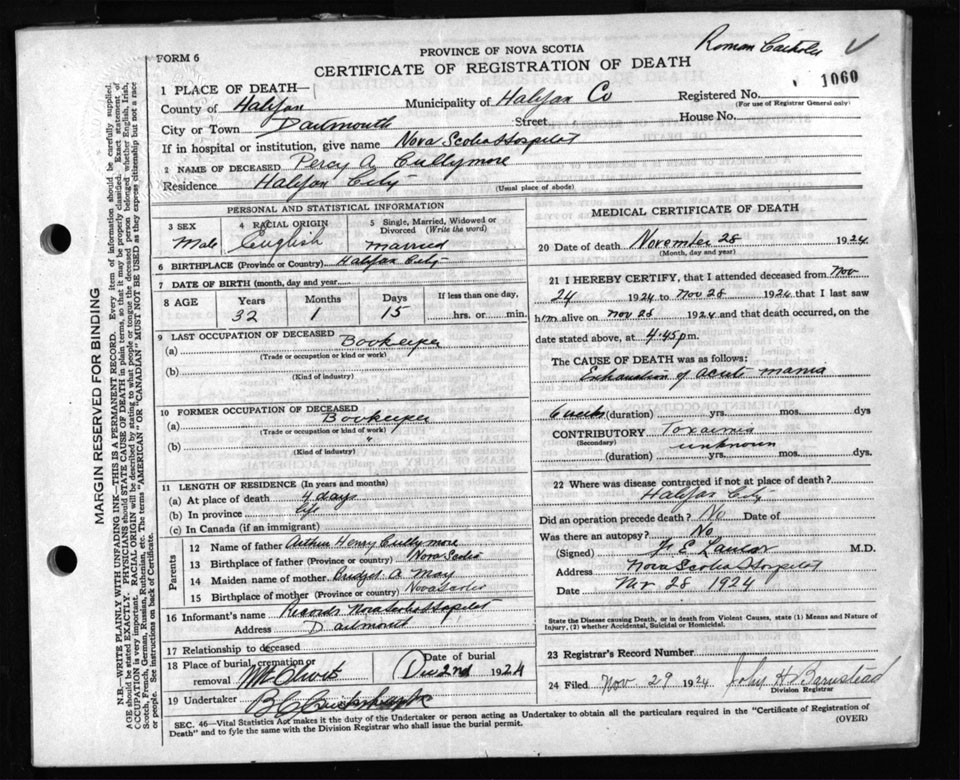 Roman Catholic ✓
FORM 6
PROVINCE OF NOVA SCOTIA
CERTIFICATE OF REGISTRATION OF DEATH
1060
1 PLACE OF DEATH—
County of Halifax Municipality of Halifax Co Registered No.
(For use of Registrar General only)
City or Town Dartmouth Street House No.
If in hospital or institution, give name Nova Scotia Hospital
2 NAME OF DECEASED Percy A Cullymore
Residence Halifax City
(Usual place of abode)
PERSONAL AND STATISTICAL INFORMATION
3 SEX 4 RACIAL ORIGIN 5 Single, Married, Widowed or Divorced (Write the word)
Male English married
6 BIRTHPLACE (Province or Country) Halifax City
7 DATE OF BIRTH (month, day and year)
8 AGE Years Months Days If less than one day,
32 1 15 hrs. or min.
9 LAST OCCUPATION OF DECEASED
(a) Bookeeper
(Trade or occupation or kind or work)
(b)
(Kind of industry)
10 FORMER OCCUPATION OF DECEASED
(a) Bookeeper
(Trade or occupation or kind of work)
(b) "
(Kind of industry)
11 LENGTH OF RESIDENCE (In years and months)
(a) At place of death 4 days
(b) In province life
(c) In Canada (if an immigrant)
Parents
12 Name of father Arthur Henry Cullymore
13 Birthplace of father (Province or country) Nova Scotia
14 Maiden name of mother Bridget A May
15 Birthplace of mother (Province or country) Nova Scotia
16 Informant's name Records Nova Scotia Hospital
Address Dartmouth
17 Relationship to deceased
18 Place of burial, cremation or removal Mt Olivet Date of burial Dec 2nd 1924
19 Undertaker
MEDICAL CERTIFICATE OF DEATH
20 Date of death November 28 1924
(Month, day and year)
21 I HEREBY CERTIFY, that I attended deceased from Nov
24 1924 to Nov 28 1924 that I last saw
him alive on Nov 28 1924 and that death occurred, on
date stated above, at 4.45 p.m.
The CAUSE OF DEATH was as follows:
Exhaustion of acute mania
6 weeks (duration) yrs. mos. dys
CONTRIBUTORY Toxaemia
(Secondary) unknown
(duration) yrs. mos. dys.
22 Where was disease contracted if not at place of death?
Halifax City
Did an operation precede death? No Date of
Was there an autopsy? No
(Signed) M.D.
Address Nova Scotia Hospital
Date Nov 28 1924
State the Disease causing Death, or in death from Violent Causes, state (1) Means and Nature of Injury, (2) whether Accidental, Suicidal or Homicidal.
23 Registrar's Record Number
24 Filed Nov 29 1924 John H Barnstead
Division Registrar
SEC. 46—Vital Statistics Act makes it the duty of the Undertaker or person acting as Undertaker to obtain all the particulars required in the "Certificate of Registration of
Death" and to fyle the same with the Division Registrar who shall issue the burial permit. (OVER)
MARGIN RESERVED FOR BINDING
N.B.—WRITE PLAINLY WITH UNFADING INK—THIS IS A PERMANENT RECORD. Every item of information should be carefully supplied.
AGE should be stated EXACTLY. PHYSICIANS should STATE CAUSE OF DEATH in plain terms, so that it may be properly classified. Exact statement of
OCCUPATION is very important. RACIAL ORIGIN will be described by stating to what people or tongue the deceased person belonged whether English, Irish,
Scotch, French, German, Russian, Ruthenian, etc. The terms "AMERICAN" OR "CANADIAN" MUST NOT BE USED as they express citizenship but not a race
or people. See instructions on back of Certificate.